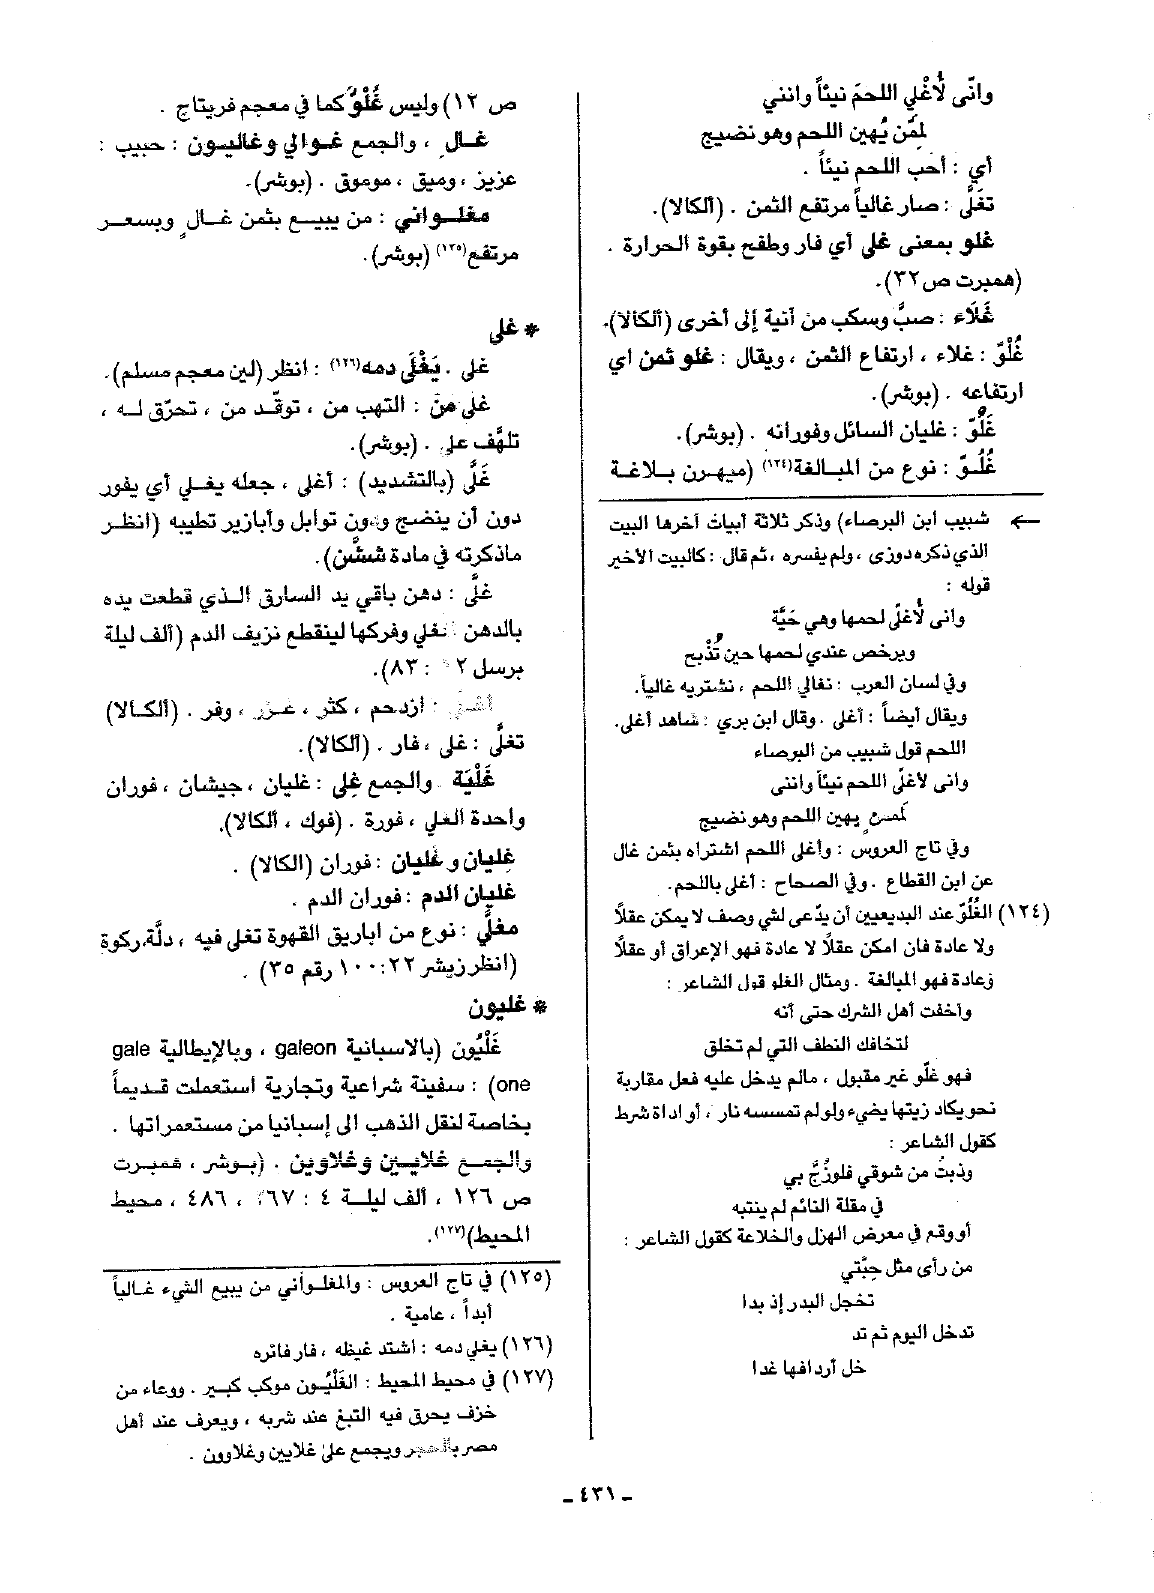 وانّى لأُغْلي اللحمَ نيئاً وانني
لِمَّن يُهين اللحم وهو نضيج
أي : أحب اللحم نيئاً .
تغَلَّى : صار غالياً مرتفع الثمن . (ألكالا).
غلو بمعنى غلى أي فار وطفح بقوة الحرارة .
(همبرت ص ٣٢).
غَلَاء : صبَّ وسكب من آنية إلى أخرى (ألكالا).
غُلُوّ : غلاء ، ارتفاع الثمن ، ويقال : غلو ثمن اي
ارتفاعه . (بوشر).
غَلُوّ : غليان السائل وفورانه . (بوشر).
غُلُوّ : نوع من المبالغة(١٢٤) (ميهرن بلاغة
← شبيب ابن البرصاء) وذكر ثلاثة أبيات آخرها البيت
الذي ذكره دوزى ، ولم يفسره ، ثم قال : كالبيت الأخير
قوله :
وانى لأُغلّى لحمها وهي حَيَّة
ويرخص عندي لحمها حين تُذْبح
وفي لسان العرب : نغالي اللحم ، نشتريه غالياً.
ويقال أيضاً : أغلى . وقال ابن بري : شاهد أغلى.
اللحم قول شبيب من البرصاء
وانى لأغلّى اللحم نيئاً وانني
لَمنٍ يهين اللحم وهو نضيج
وفي تاج العروس : وأغلى اللحم اشتراه بثمن غال
عن ابن القطاع . وفي الصحاح : أغلى باللحم.
(١٢٤) الغُلُوّ عند البديعيين أن يدّعى لشي وصف لا يمكن عقلاً
ولا عادة فان امكن عقلاً لا عادة فهو الإعراق أو عقلاً
وعادة فهو المبالغة . ومثال الغلو قول الشاعر :
وأخفت أهل الشرك حتى أنه
لتخافك النطف التي لم تخلق
فهو غلّو غير مقبول ، مالم يدخل عليه فعل مقاربة
نحو يكاد زيتها يضيء ولو لم تمسسه نار ، أو اداة شرط
كقول الشاعر :
وذبتُ من شوقي فلوزُجَّ بي
في مقلة النائم لم ينتبه
أو وقع في معرض الهزل والخلاعة كقول الشاعر :
من رأى مثل حِبَّتي
تخجل البدر إذ بدا
تدخل اليوم ثم تد
خل أردافها غدا
ص ١٢) وليس غُلُوٌّ كما في معجم فريتاج .
غالٍ ، والجمع غوالي وغاليون : حبيب :
عزيز ، وميق ، موموق . (بوشر).
مغلواني : من يبيع بثمن غالٍ وبسعر
مرتفع(١٢٥) (بوشر).
* غلى
غلى . يَغْلَى دمه(١٢٦) : انظر (لين معجم مسلم).
غلى من : التهب من ، توقّد من ، تحرّق له ،
تلهَّف على . (بوشر).
غَلَّى (بالتشديد) : أغلى ، جعله يغلي أي يفور
دون أن ينضج ودون توابل وأبازير تطيبه (انظر
ماذكرته في مادة ششَّن).
غلَّى : دهن باقي يد السارق الذي قطعت يده
بالدهن المغلي وفركها لينقطع نزيف الدم (ألف ليلة
برسل ٢ : ٨٣).
: ازدحم ، كثر ، غزر ، وفر . (ألكالا)
تغلَّى : غلى ، فار . (ألكالا).
غَلْيَة . والجمع غِلي : غليان ، جيشان ، فوران
واحدة الغلي ، فورة . (فوك ، ألكالا).
غِليان وغَليان : فوران (الكالا) .
غليان الدم : فوران الدم .
مغلَّي : نوع من اباريق القهوة تغلى فيه ، دلَّة، ركوة
(انظر زيشر ٢٢:١٠٠ رقم ٣٥) .
* غليون
غَلْيُون (بالاسبانية galeon ، وبالإيطالية gale
one) : سفينة شراعية وتجارية استعملت قديماً
بخاصة لنقل الذهب الى إسبانيا من مستعمراتها .
والجمع غلايين وغلاوين . (بوشر ، همبرت
ص ١٢٦ ، ألف ليلة ٤ : ، ٤٨٦ ، محيط
المحيط)(١٢٧).
(١٢٥) في تاج العروس : والمغلواني من يبيع الشيء غالياً
أبداً ، عامية .
(١٢٦) يغلي دمه : اشتد غيظه ، فار فائره
(١٢٧) في محيط المحيط : الغَلْيُون موكب كبير . ووعاء من
خزف يحرق فيه التبغ عند شربه ، ويعرف عند أهل
مصر بالحجر ويجمع على غلايين وغلاوون .
ـ ٤٣١ ـ